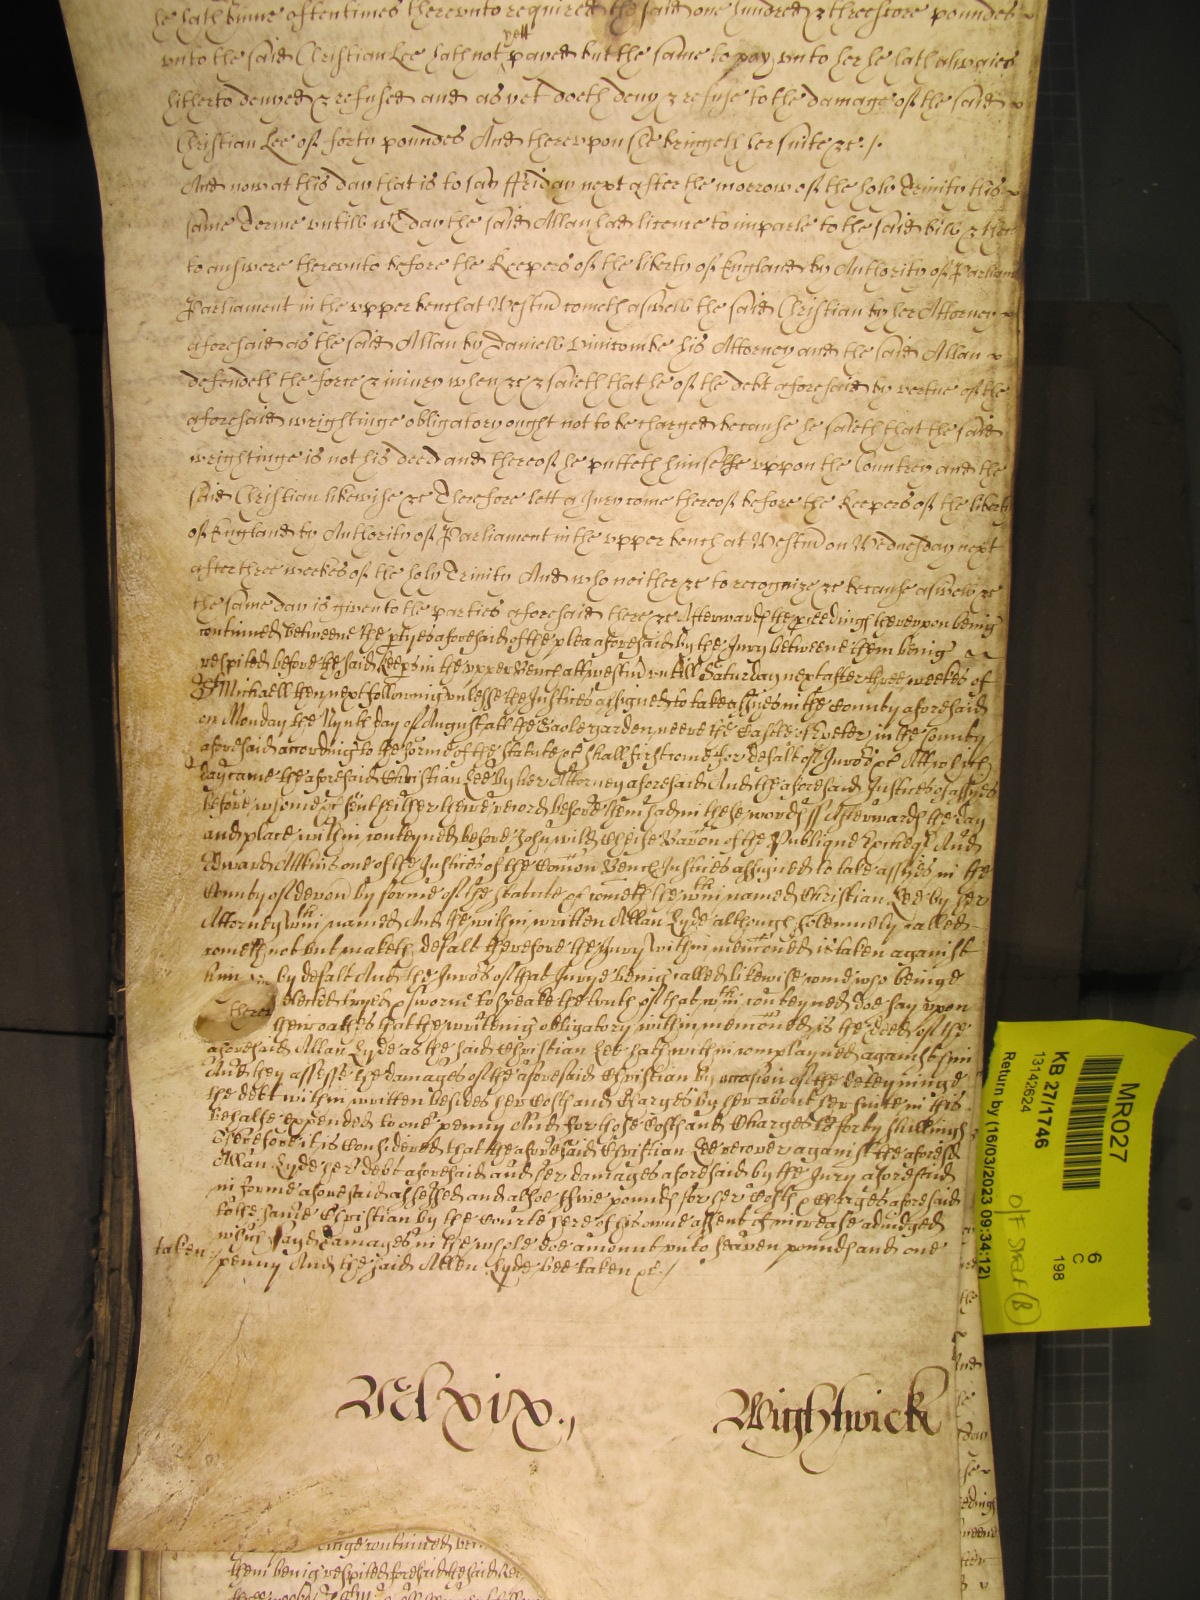 he hath binne oftentimes therevnto required the said one hundred & threescore poundes
vnto the said Christian Lee hath not yett payed but the same to pay vnto her he hath alwaies
hitherto denyed & refused and as yet doeth deny & refuse to the damage of the said
Christian Lee of forty poundes And therevpon she bringeth her suite &c. /.
And now at this day that is to say ffriday next after the morrow of the holy Trinity this
same Terme vntill wch day the said Allan had licence to imparle to the said bill & then
to answere therevnto before the Keepers of the liberty of England by Authority of Parliam
Parliament in the vpper bench at Westm cometh aswell the said Christian by her Attorney
aforesaid as the said Allan by Daniell Vinicombe his Attorney and the said Allan
defendeth the force & iniury when &c & saieth that he of the debt aforesaid by vertue of the
aforesaid wrightinge obligatory ought not to be charged because he saieth that the said
wrightinge is not his deed and thereof he putteth himselfe vppon the Countrey and the
said Christian likewise &c Therefore lett a Jury come thereof before the Keepers of the liberty
of England by Authority of Parliament in the vpper bench at Westm on Wednesday next
after three weekes of the holy Trinity And who neither &c to recognize &c because aswell &c
the same day is given to the parties aforesaid there &c Afterwards the pceedings therevpon being
continued betweene the ptyes aforesaid of the plea aforesaid by the Jury betweene them being
respited before the said Keeps in the vpper Bench att westm vntill Saturday next after three weekes of
St Michaell then next following vnlesse the Justices assigned to take assizes in the County aforesaid
on Monday the Nynth day of August att the Gaole garden neere the Castle of Exeter in the County
aforesaid according to the forme of the Statute &c shall first come for defalt of Jurors &c Att which
day came the aforesaid Christian Lee by her Attorney aforesaid And the aforesaid Justices of assizes
before whome &c sent hether theire record before them had in these words ss Afterwards the day
and place within conteyned before John wild Cheife Baron of the Publique Excheqr And
Edward Atkins one of the Justices of the Comon Bench Justices assigned to take assizes in the
County of devon by forme of the statute &c cometh the wthin named Christian Lee by her
Attorney wthin named And the within written Allan Lyde although solemnely called
cometh not but maketh defalt therefore the Jury within mencioned is taken against
him by defalt And the Jurors of that Jury being called likewise come who beinge
elected tryed & sworne to speake the truth of that wthin conteyned doe say vpon
their oathes that the writeinge obligatory within mencioned is the deed of the
aforesaid Allan Lyde as the said Christian Lee hath within complayned against him
And they assesse the damages of the aforesaid Christian by occasion of the deteyninge
the debt within written besides her Costs and Charges by her about her suite in this
behalfe expended to one penny And for those Costs and Charges to forty shillings
Therefore it is Considered that the aforesaid Christian Lee recover against the aforesd
Allan Lyde her debt aforesaid and her damages aforesaid by the Jury aforesaid
in forme aforesaid assessed and alsoe ffive pounds for her Costs & Charges aforesaid
to the same Christian by the Courte here of his owne assent of increase adiudged
which said damages in the whole doe amount vnto seaven pounds and one
taken penny And the said Allen Lyde bee taken &c /
Mlxix.,
Wightwick
MR027
KB 27/1746
13142624
Return by (16/03/2023 09:34:12)
6
C
198
them being respited before the said